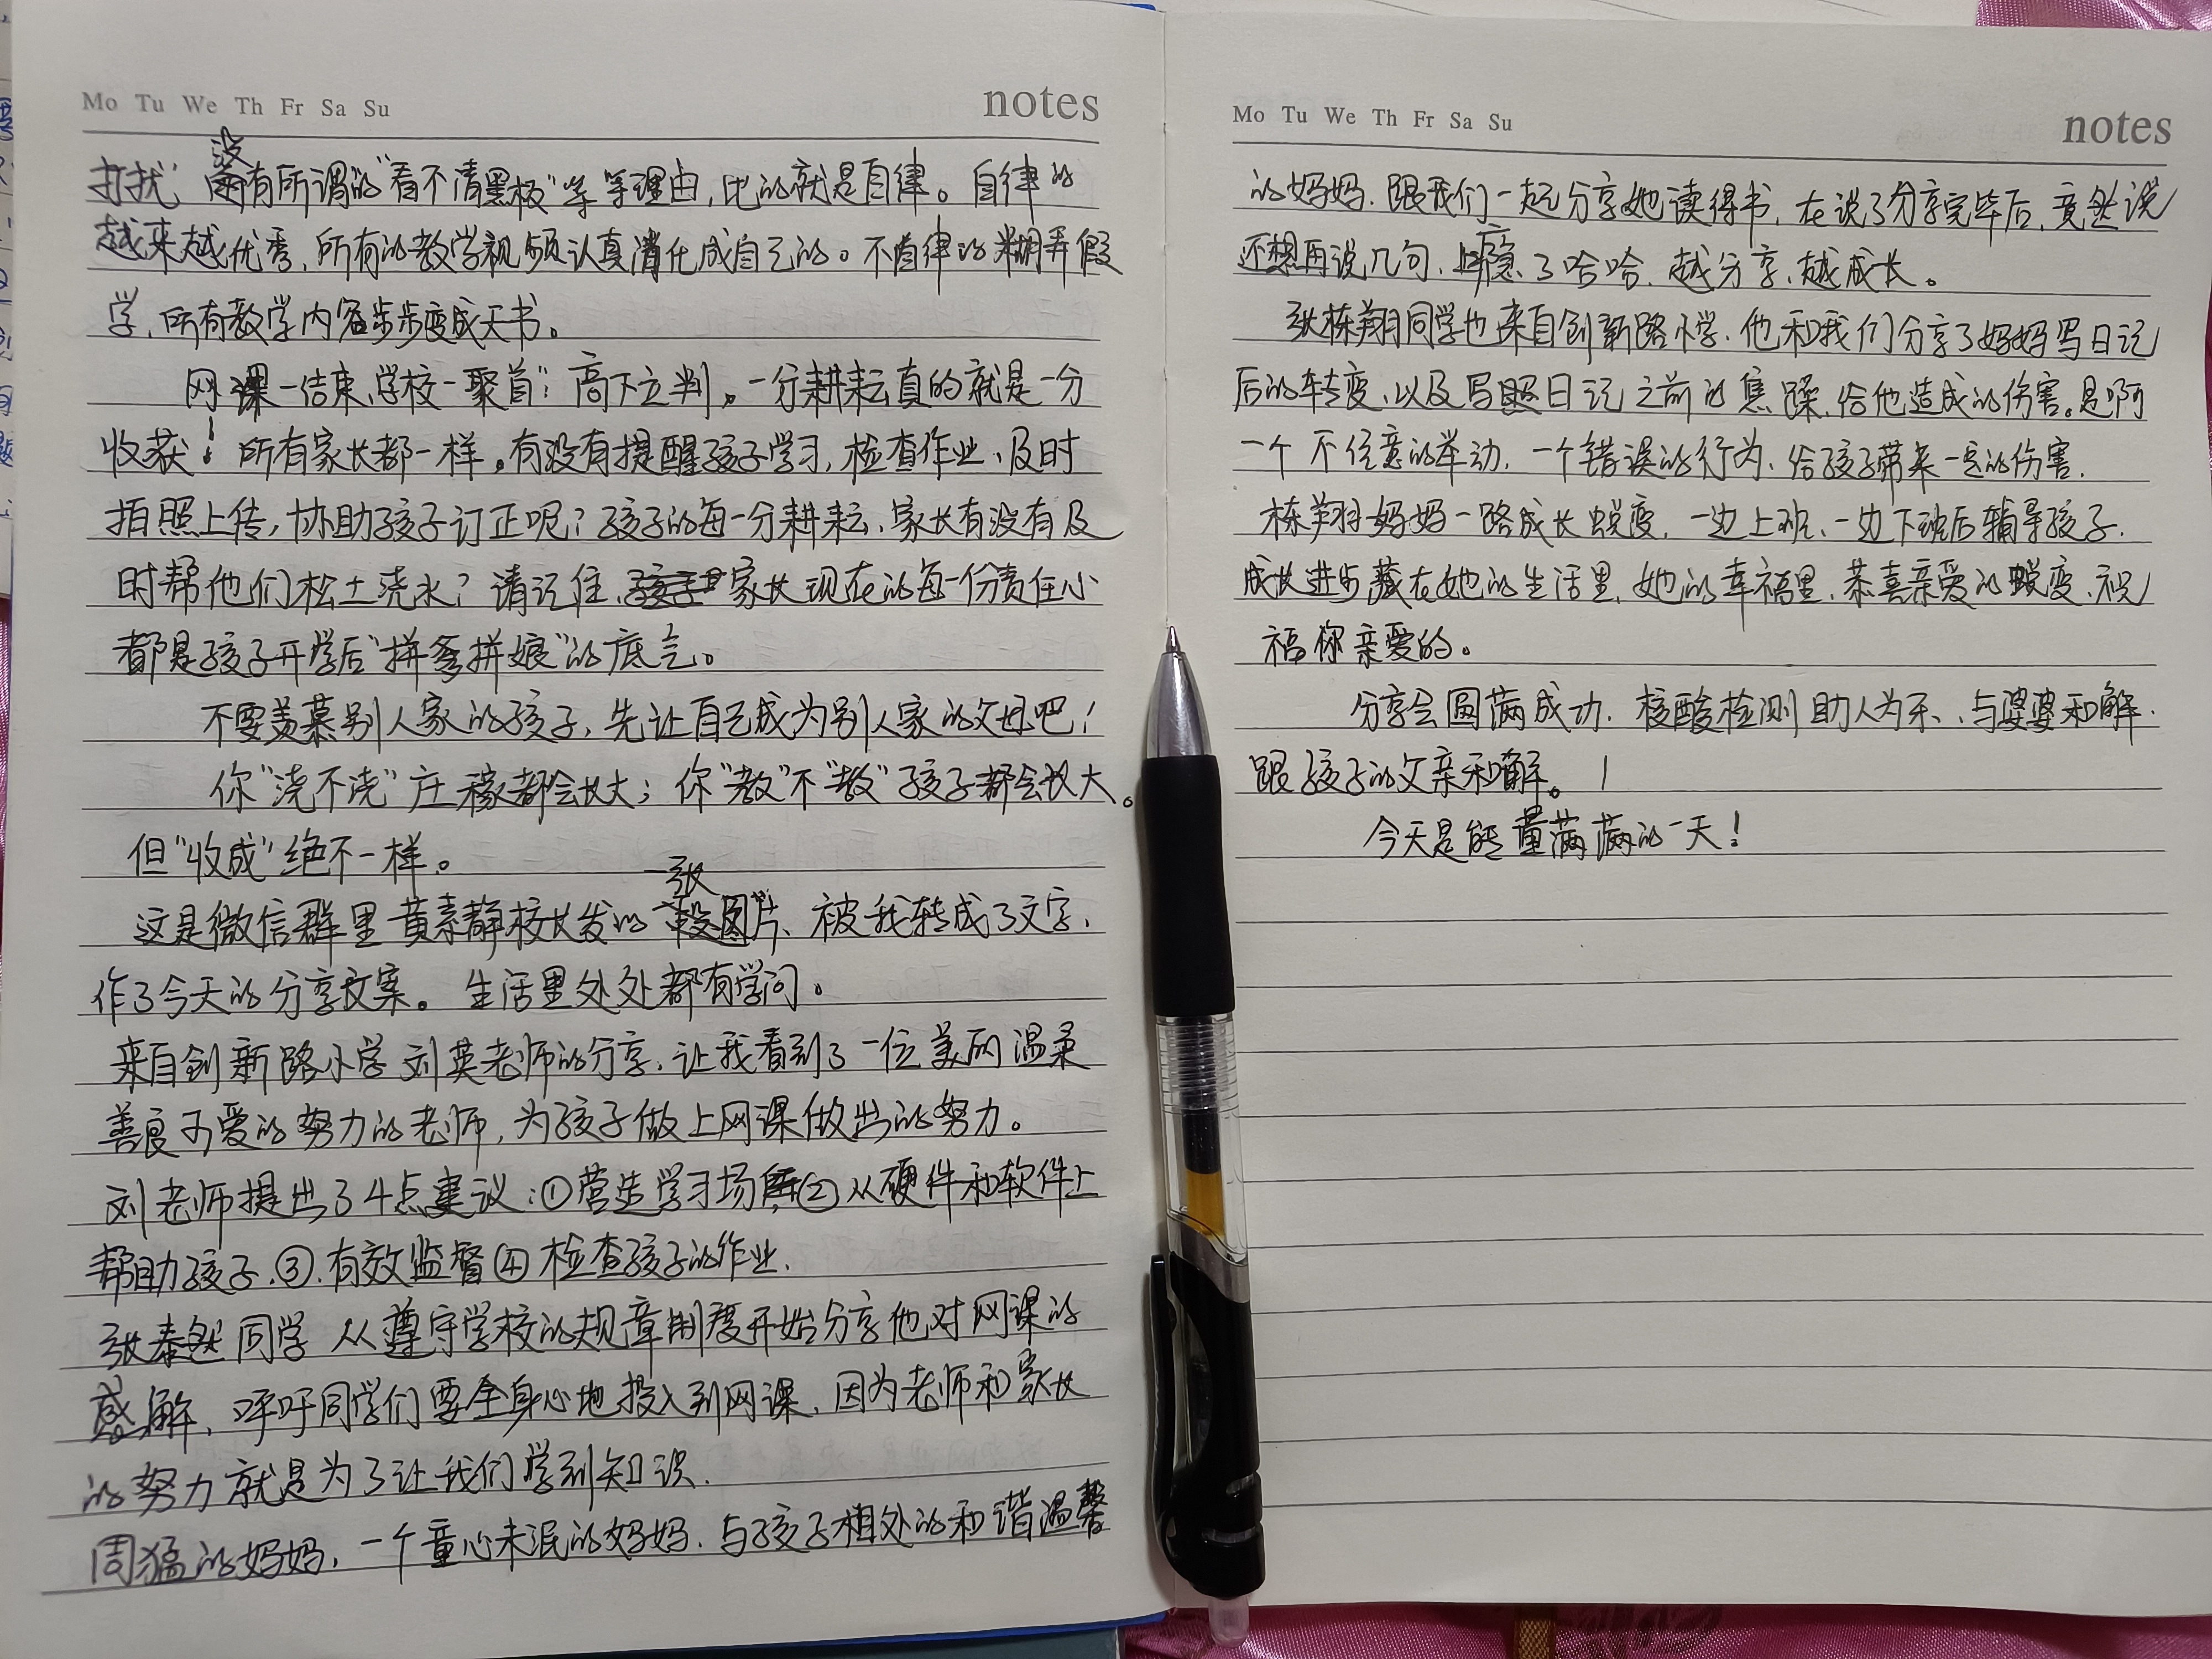 Mo Tu We Th Fr Sa Su
notes
打扰，没有所谓的“看不清黑板”等等理由，比的就是自律。自律的
越来越优秀，所有的教学视频认真消化成自己的。不自律的糊弄假
学，所有教学内容步步变成天书。
网课一结束，学校一聚首；高下立判。一分耕耘真的就是一分
收获！所有家长都一样。有没有提醒孩子学习，检查作业、及时
拍照上传，协助孩子订正呢？孩子的每一分耕耘、家长有没有及
时帮他们松土浇水？请记住，家长现在的每一份责任心
都是孩子开学后“拼爹拼娘”的底气。
不要羡慕别人家的孩子，先让自己成为别人家的父母吧！
你“浇不浇”庄稼都会长大；你“教”不“教”孩子都会长大。
但“收成”绝不一样。
这是微信群里黄素静校长发的一张图片、被我转成了文字，
作了今天的分享文案。生活里处处都有学问。
来自创新路小学刘英老师的分享，让我看到了一位美丽温柔
善良可爱的努力的老师，为孩子做上网课做出的努力。
刘老师提出了4点建议：①营造学习场 ②从硬件和软件上
帮助孩子.③.有效监督④检查孩子的作业.
张泰然同学从遵守学校的规章制度开始分享他对网课的
感解，呼吁同学们要全身心地投入到网课，因为老师和家长
的努力就是为了让我们学到知识.
周猛的妈妈，一个童心未泯的妈妈.与孩子相处的和谐温馨
Mo Tu We Th Fr Sa Su
notes
的妈妈.跟我们一起分享她读得书，在说了分享完毕后，竟然说
还想再说几句、上瘾了哈哈.越分享、越成长。
张栋翔同学也来自创新路小学.他和我们分享了妈妈写日记
后的转变、以及写日记之前的焦躁.给他造成的伤害。是啊
一个不任意的举动，一个错误的行为、给孩子带来一定的伤害.
栋翔妈妈一路成长蜕变，一边上班、一边下班后辅导孩子.
成长进步藏在她的生活里，她的幸福里.恭喜亲爱的蜕变、祝
福你亲爱的。
分享会圆满成功.核酸检测助人为乐、与婆婆和解.
跟孩子的父亲和解。
今天是能量满满的一天！